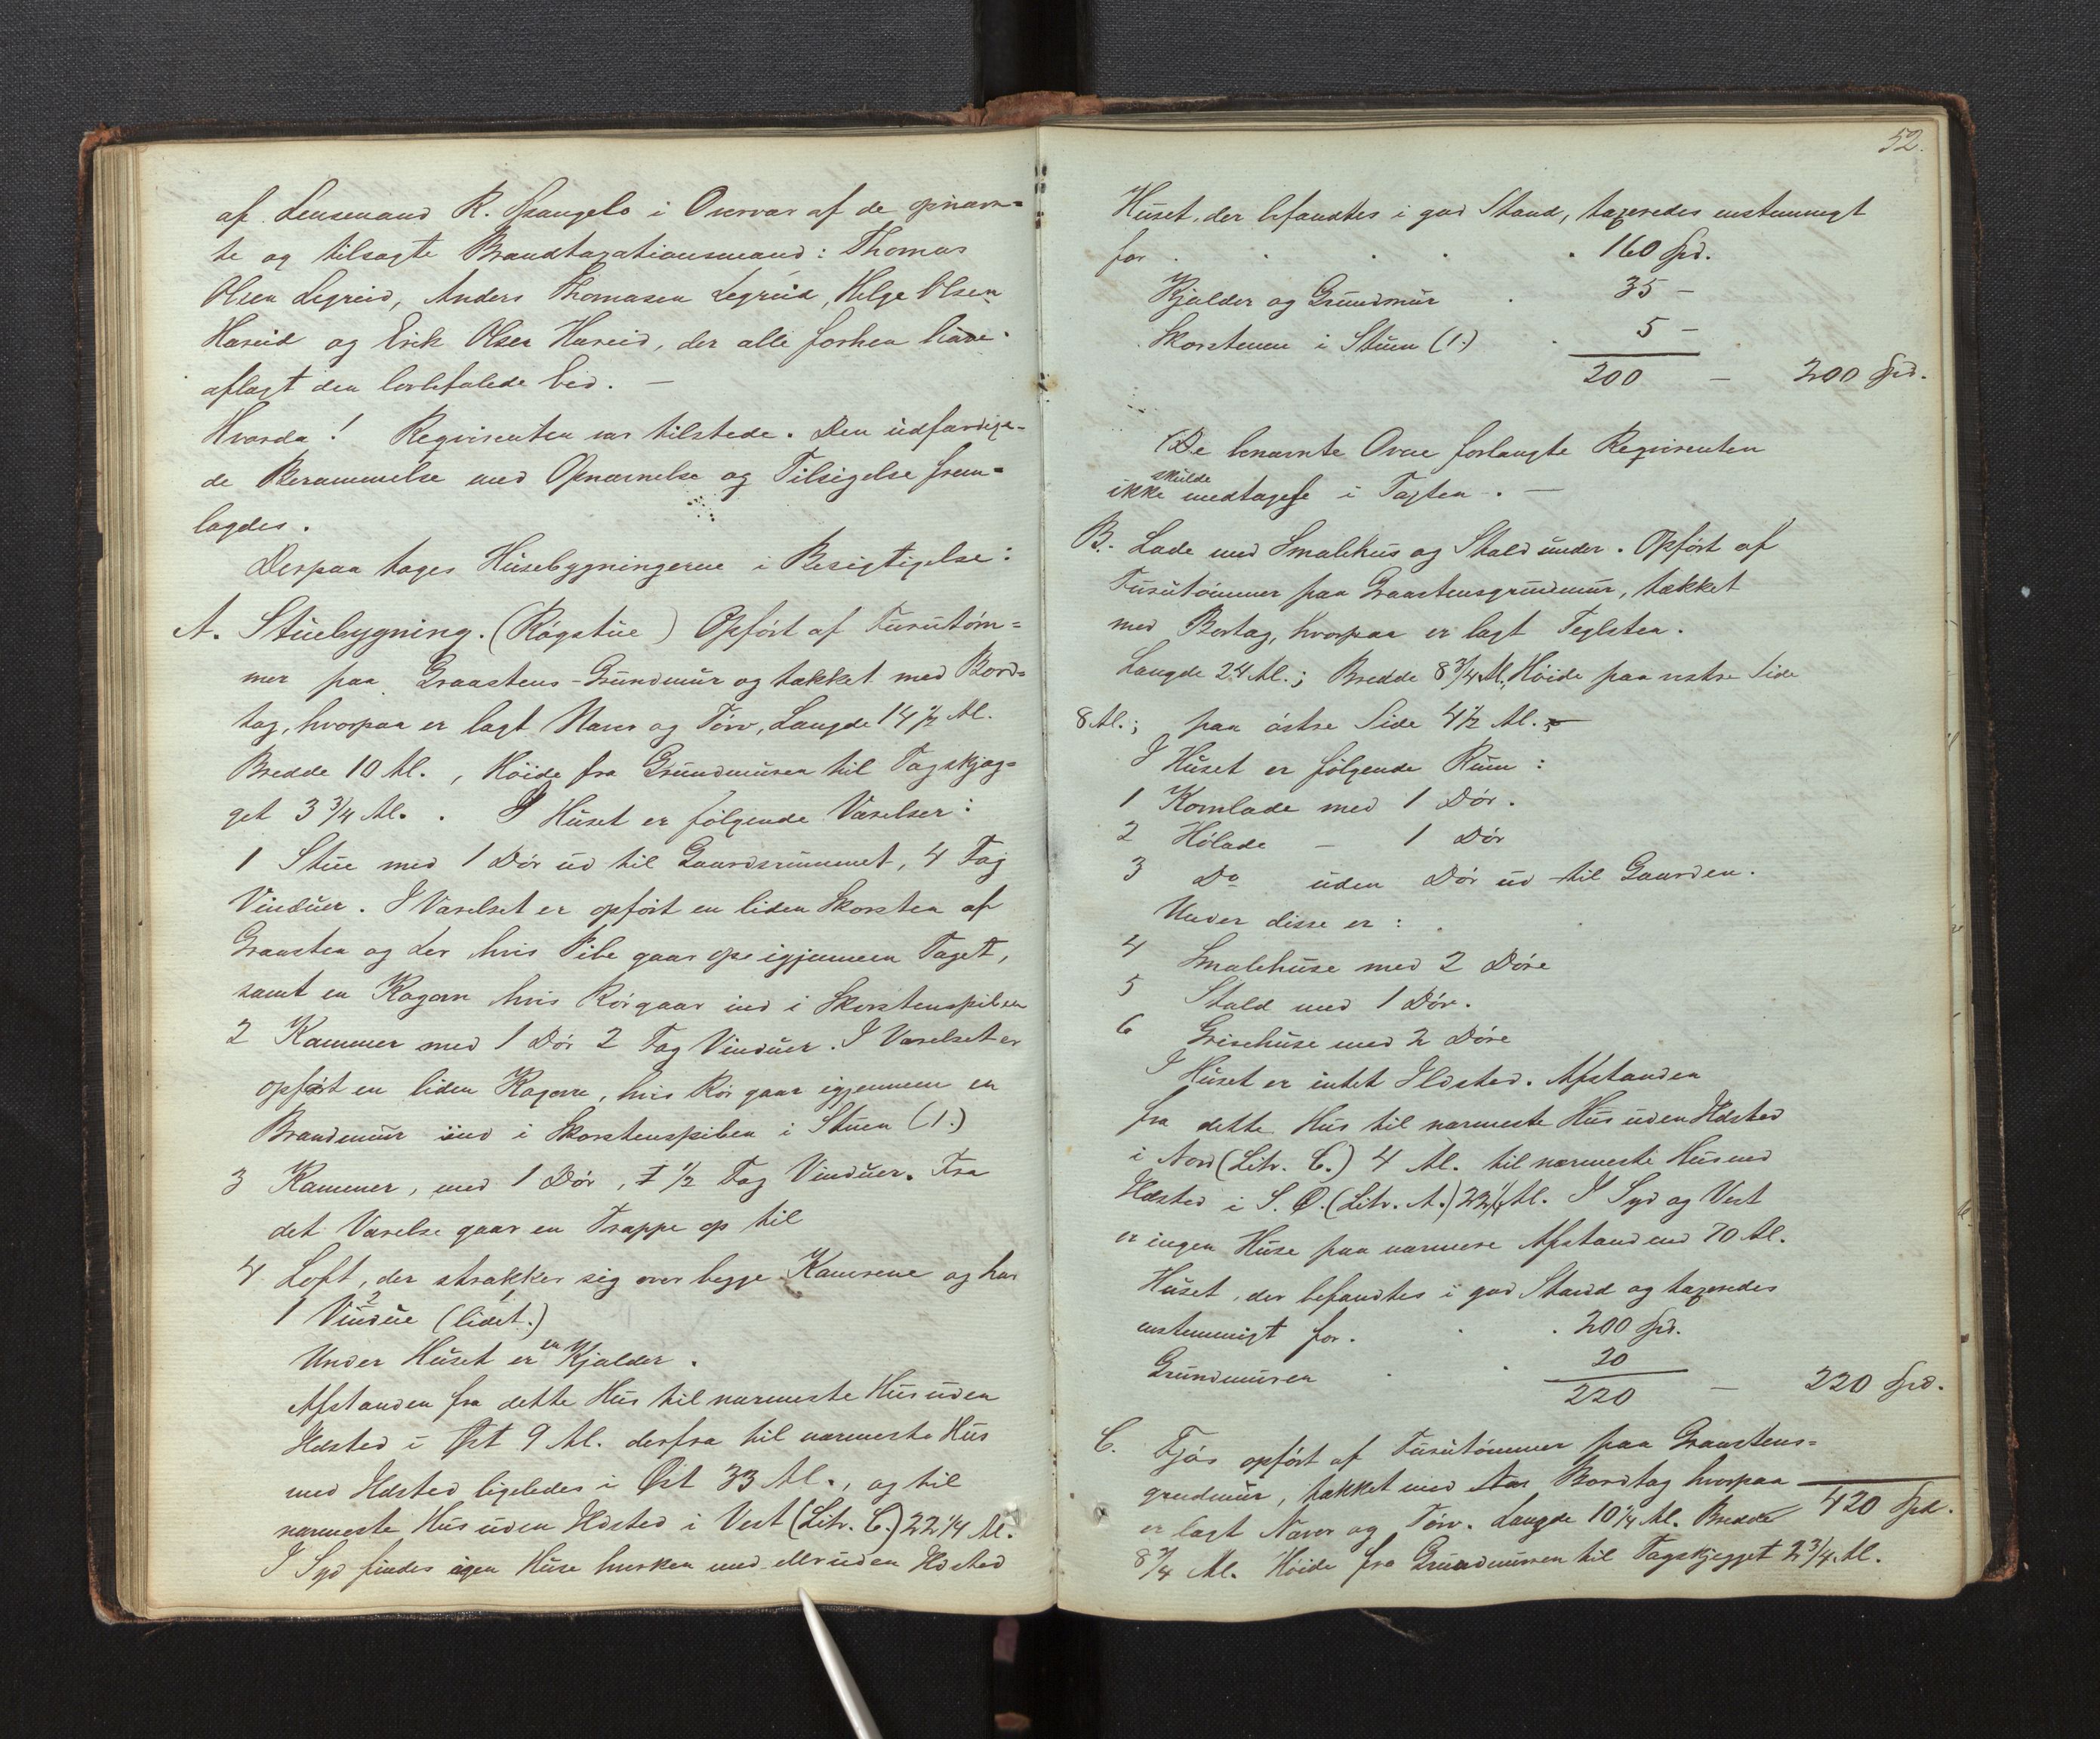 af Lensmand R. Spangelo i Overvær af de opnævn=
te og tilsagte Brandtaxationsmænd: Thomas
Olsen Legreid, Anders Thomasen Legreid, Helge Olsen
Hareid og Erik Olsen Hareid, der alle forhen have
aflagt den lovbefalede Eed. —
Hvorda! Reqvirenten var tilstede. Den udfærdige-
de Berammelse med Opnævnelse og Tilsigelse frem=
lagdes.
Derpaa toges Husebygningerne i Besigtigelse:
A. Stuebygning. (Røgstue) Opført af Furutøm=
mer paa Graastens-Grundmur og tækket med Bord=
tag, hvorpaa er lagt Næver og Törv, Længde 14 1/2 Al.
Bredde 10 Al., Höide fra Grundmuren til Tagskjæg=
get 3 3/4 Al. . I Huset er følgende Værelser:
1 Stue med 1 Dör ud til Gaardsrummet, 4 Fag
Vinduer. I Værelset er opført en liden Skorsten af
Graasten og Ler hvis Pibe gaar op igjennem Taget,
samt en Kogovn hvis Rör gaar ind i Skorstenspiben
2 Kammer med 1 Dör 2 Fag Vinduer. I Værelset er
opført en liden Kogovn, hvis Rör gaar igjennem en
Brandmuur ind i Skorstenspiben i Stuen (1.)
3 Kammer, med 1 Dör, 1 1/2 Fag Vinduer. Fra
det Værelse gaar en Trappe op til
4 Loft, der strækker sig over begge Kamrene og har
2 1
1 Vindue (lidet.)
Under Huset er en Kjælder.
Afstanden fra dette Hus til nærmeste Hus uden
Ildsted i Øst 9 Al. derfra til nærmeste Hus
med Ildsted ligeledes i Øst 33 Al., og til
nærmeste Hus uden Ildsted i Vest (Litr. C.) 22 1/4 Al.
I Syd findes igen Huse hverken med eller uden Ildsted
52.
Huset, der befandtes i god Stand, taxeredes enstemmigt
for . . . . . 160 Spd.
Kjælder og Grundmur . 35 —
Skorstenen i Stuen (1.) . 5 —
200 — 200 Spd.
De benævnte Ovne forlangte Reqvirenten
ikke skulde medtages i Taxten. —
B. Lade med Smalehus og Stald under. Opført af
Furutömmer paa Graastensgrundmur, tækket
med Bortag, hvorpaa er lagt Teglsten.
Længde 24 Al.; Bredde 8 3/4 Al., Höide paa vestre Side
8 Al.; paa östre Side 4 1/2 Al.
I Huset er fölgende Rum:
1 Kornlade med 1 Dör.
2 Hölade — 1 Dör
3 Do uden Dör ud til Gaarden.
Under disse er:
4 Smalehuse med 2 Döre
5 Stald med 1 Dör.
6 Grisehuse med 2 Döre
I Huset er intet Ildsted. Afstanden
fra dette Hus til nærmeste Hus uden Ildsted
i Nord (Litr. C.) 4 Al. til nærmeste Hus med
Ildsted i S. O. (Litr. A.) 22 1/4 Al. I Syd og Vest
er ingen Huse paa nærmere Afstand end 70 Al.
Huset, der befandtes i god Stand og taxeredes
enstemmigt for . . . 200 Spd.
Grundmuren . . 20
220 — 220 Spd.
C. Fjös opfört af Furutömmer paa Graastens=
grudmur, tækket med Bordtag hvorpaa
er lagt Næver og Törv. Længde 10 1/4 Al. Bredde 420 Spd.
8 3/4 Al. Höide fra Grundmuren til Tagskjægget 2 3/4 Al.